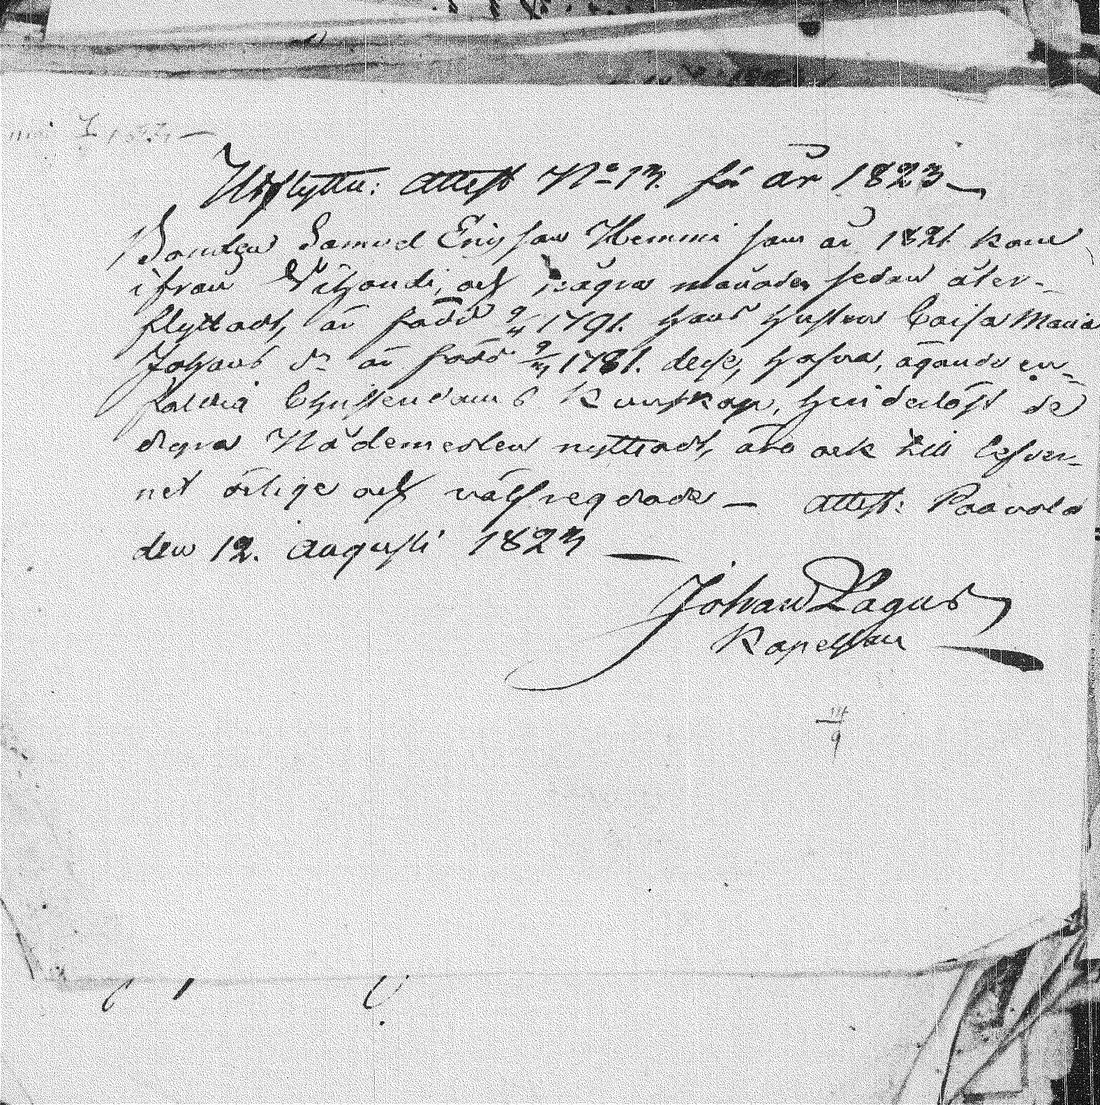 Utflyttn: Attest No 13. för år 1823
Bonden Samuel Ericsson Hemmi som år 1821 kom
ifrån och några månader sedan åter-
flyttadt, är född 9/4 1791. hans hustru Caisa Maria
Johans dr är född 1781. desse, hafva, ägande en-
faldig Christendoms Kunskap, hinderlöst de
dyra Nådemedlen nyttiadt, äro ock till lefver-
net ärlige och välfregdade — Attest: Paavola
den 12. Augusti 1823
Johan Lagus
Kapellan